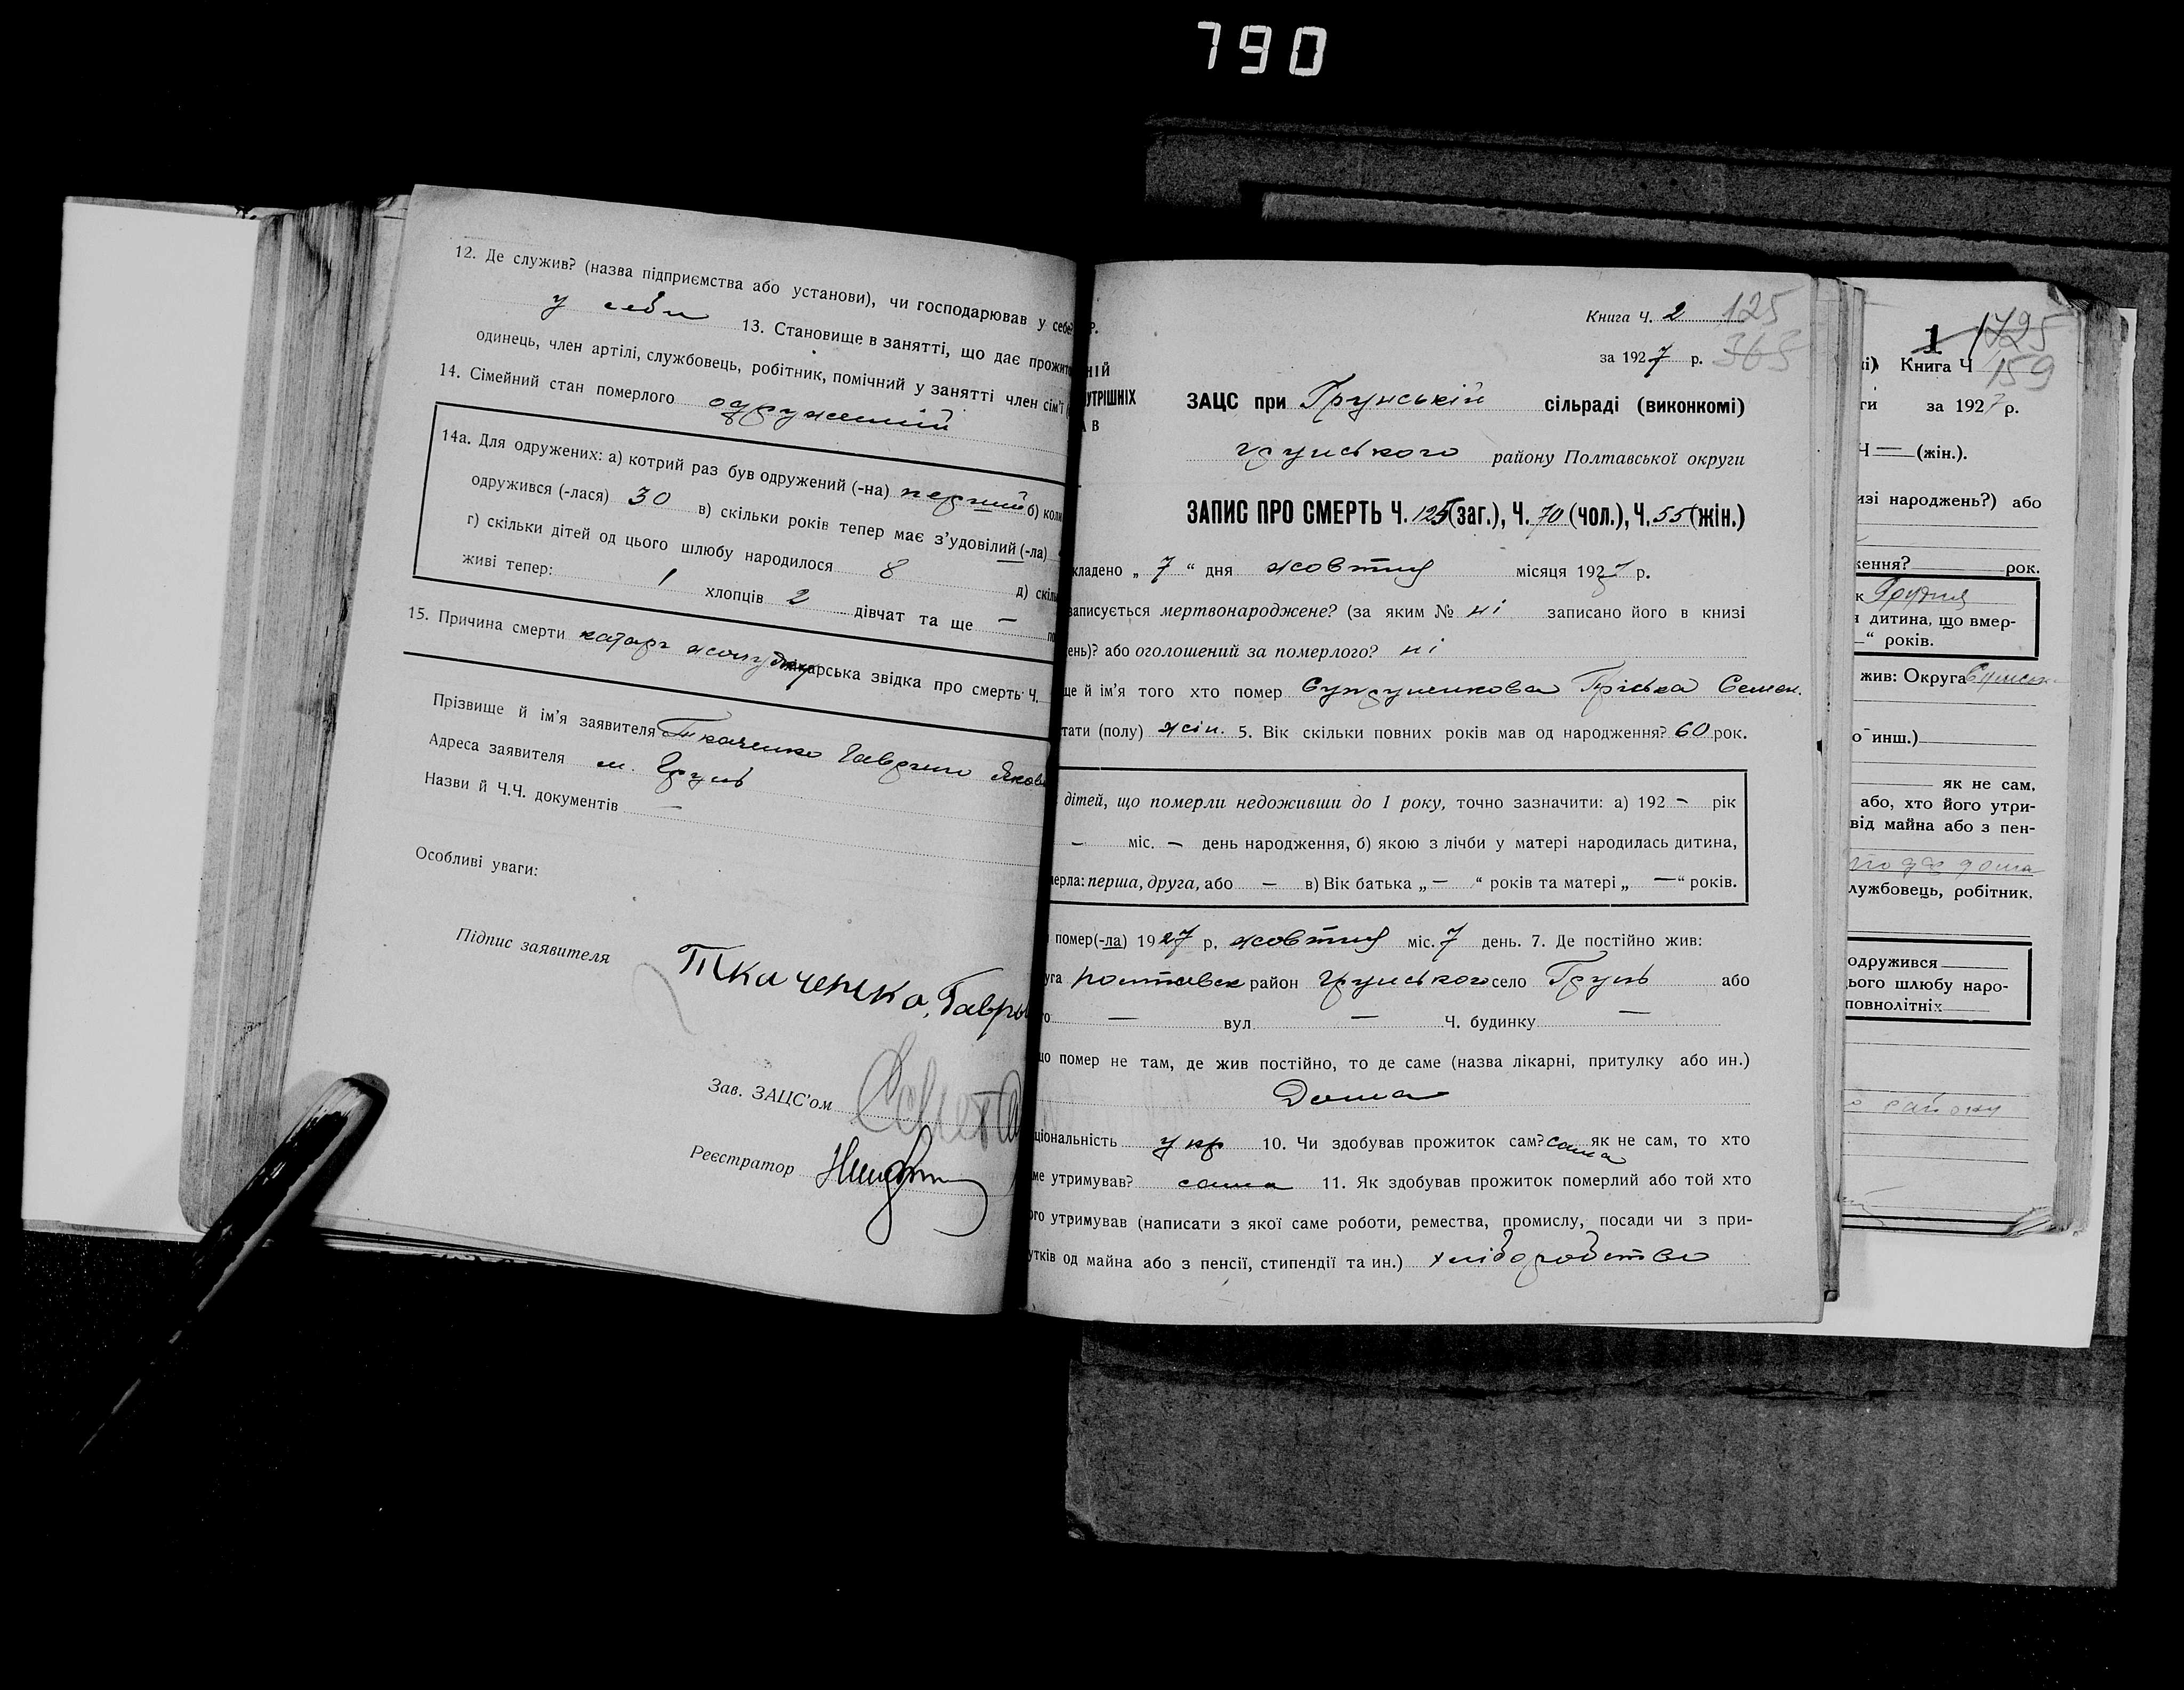 790
12. Де служив? (назва підприємства або установи), чи господарював у себе?
у себи 13. Становище в занятті, що дає прожито
одинець, член артілі, службовець, робітник, помічний у занятті член сім'ї (
14. Сімейний стан померлого одружений
14а. Для одружених: а) котрий раз був одружений (-на) перший б) коли
одружився (-лася) 30 в) скільки років тепер має з'удовілий (-ла)
г) скільки дітей од цього шлюбу народилося 8 д) скіль
живі тепер: 1 хлопців 2 дівчат та ще —
15. Причина смерти катарг жолудку лікарська звідка про смерть Ч.
Прізвище й ім'я заявителя Ткаченко Гаврило Яков
Адреса заявителя м. Грунь
Назви й Ч.Ч. документів —
Особливі уваги:
Підпис заявителя Ткаченко, Гавры
Зав. ЗАЦС'ом
Реєстратор
Р.
НІЙ
УТРІШНІХ
А В
Книга Ч. 2 125
за 1927 р. 365
ЗАЦС при Грунській сільраді (виконкомі)
грунського району Полтавської округи
ЗАПИС ПРО СМЕРТЬ Ч. 125 (заг.), Ч. 70 (чол.), Ч. 55 (жін.)
кладено „ 7 “ дня жовтня місяця 1927 р.
записується мертвонароджене? (за яким № ні записано його в книзі
ень)? або оголошений за померлого? ні
ще й ім'я того хто помер Семен.
тати (полу) жін. 5. Вік скільки повних років мав од народження? 60 рок.
дітей, що померли недоживши до 1 року, точно зазначити: а) 192 — рік
— міс. — день народження, б) якою з лічби у матері народилась дитина,
мерла: перша, друга, або — в) Вік батька „ — “ років та матері „ — “ років.
помер(-ла) 1927 р. жовтня міс. 7 день. 7. Де постійно жив:
уга полтавськ район Грунського село Грунь або
го — вул — Ч. будинку —
що помер не там, де жив постійно, то де саме (назва лікарні, притулку або ин.)
Дома
ціональність укр 10. Чи здобував прожиток сам? сама як не сам, то хто
ме утримував? сама 11. Як здобував прожиток померлий або той хто
ого утримував (написати з якої саме роботи, ремества, промислу, посади чи з при-
утків од майна або з пенсії, стипендії та ин.) хліборобство
1 125
і) Книга Ч 159
ги за 1927 р.
Ч — (жін.).
изі народжень?) або
ження? рок.
к Грудня
я дитина, що вмер-
—“ років.
жив: Округа Сумськ
о инш.)
як не сам,
або, хто його утри-
від майна або з пен-
лужбовець, робітник,
одружився
ього шлюбу наро-
повнолітніх
району